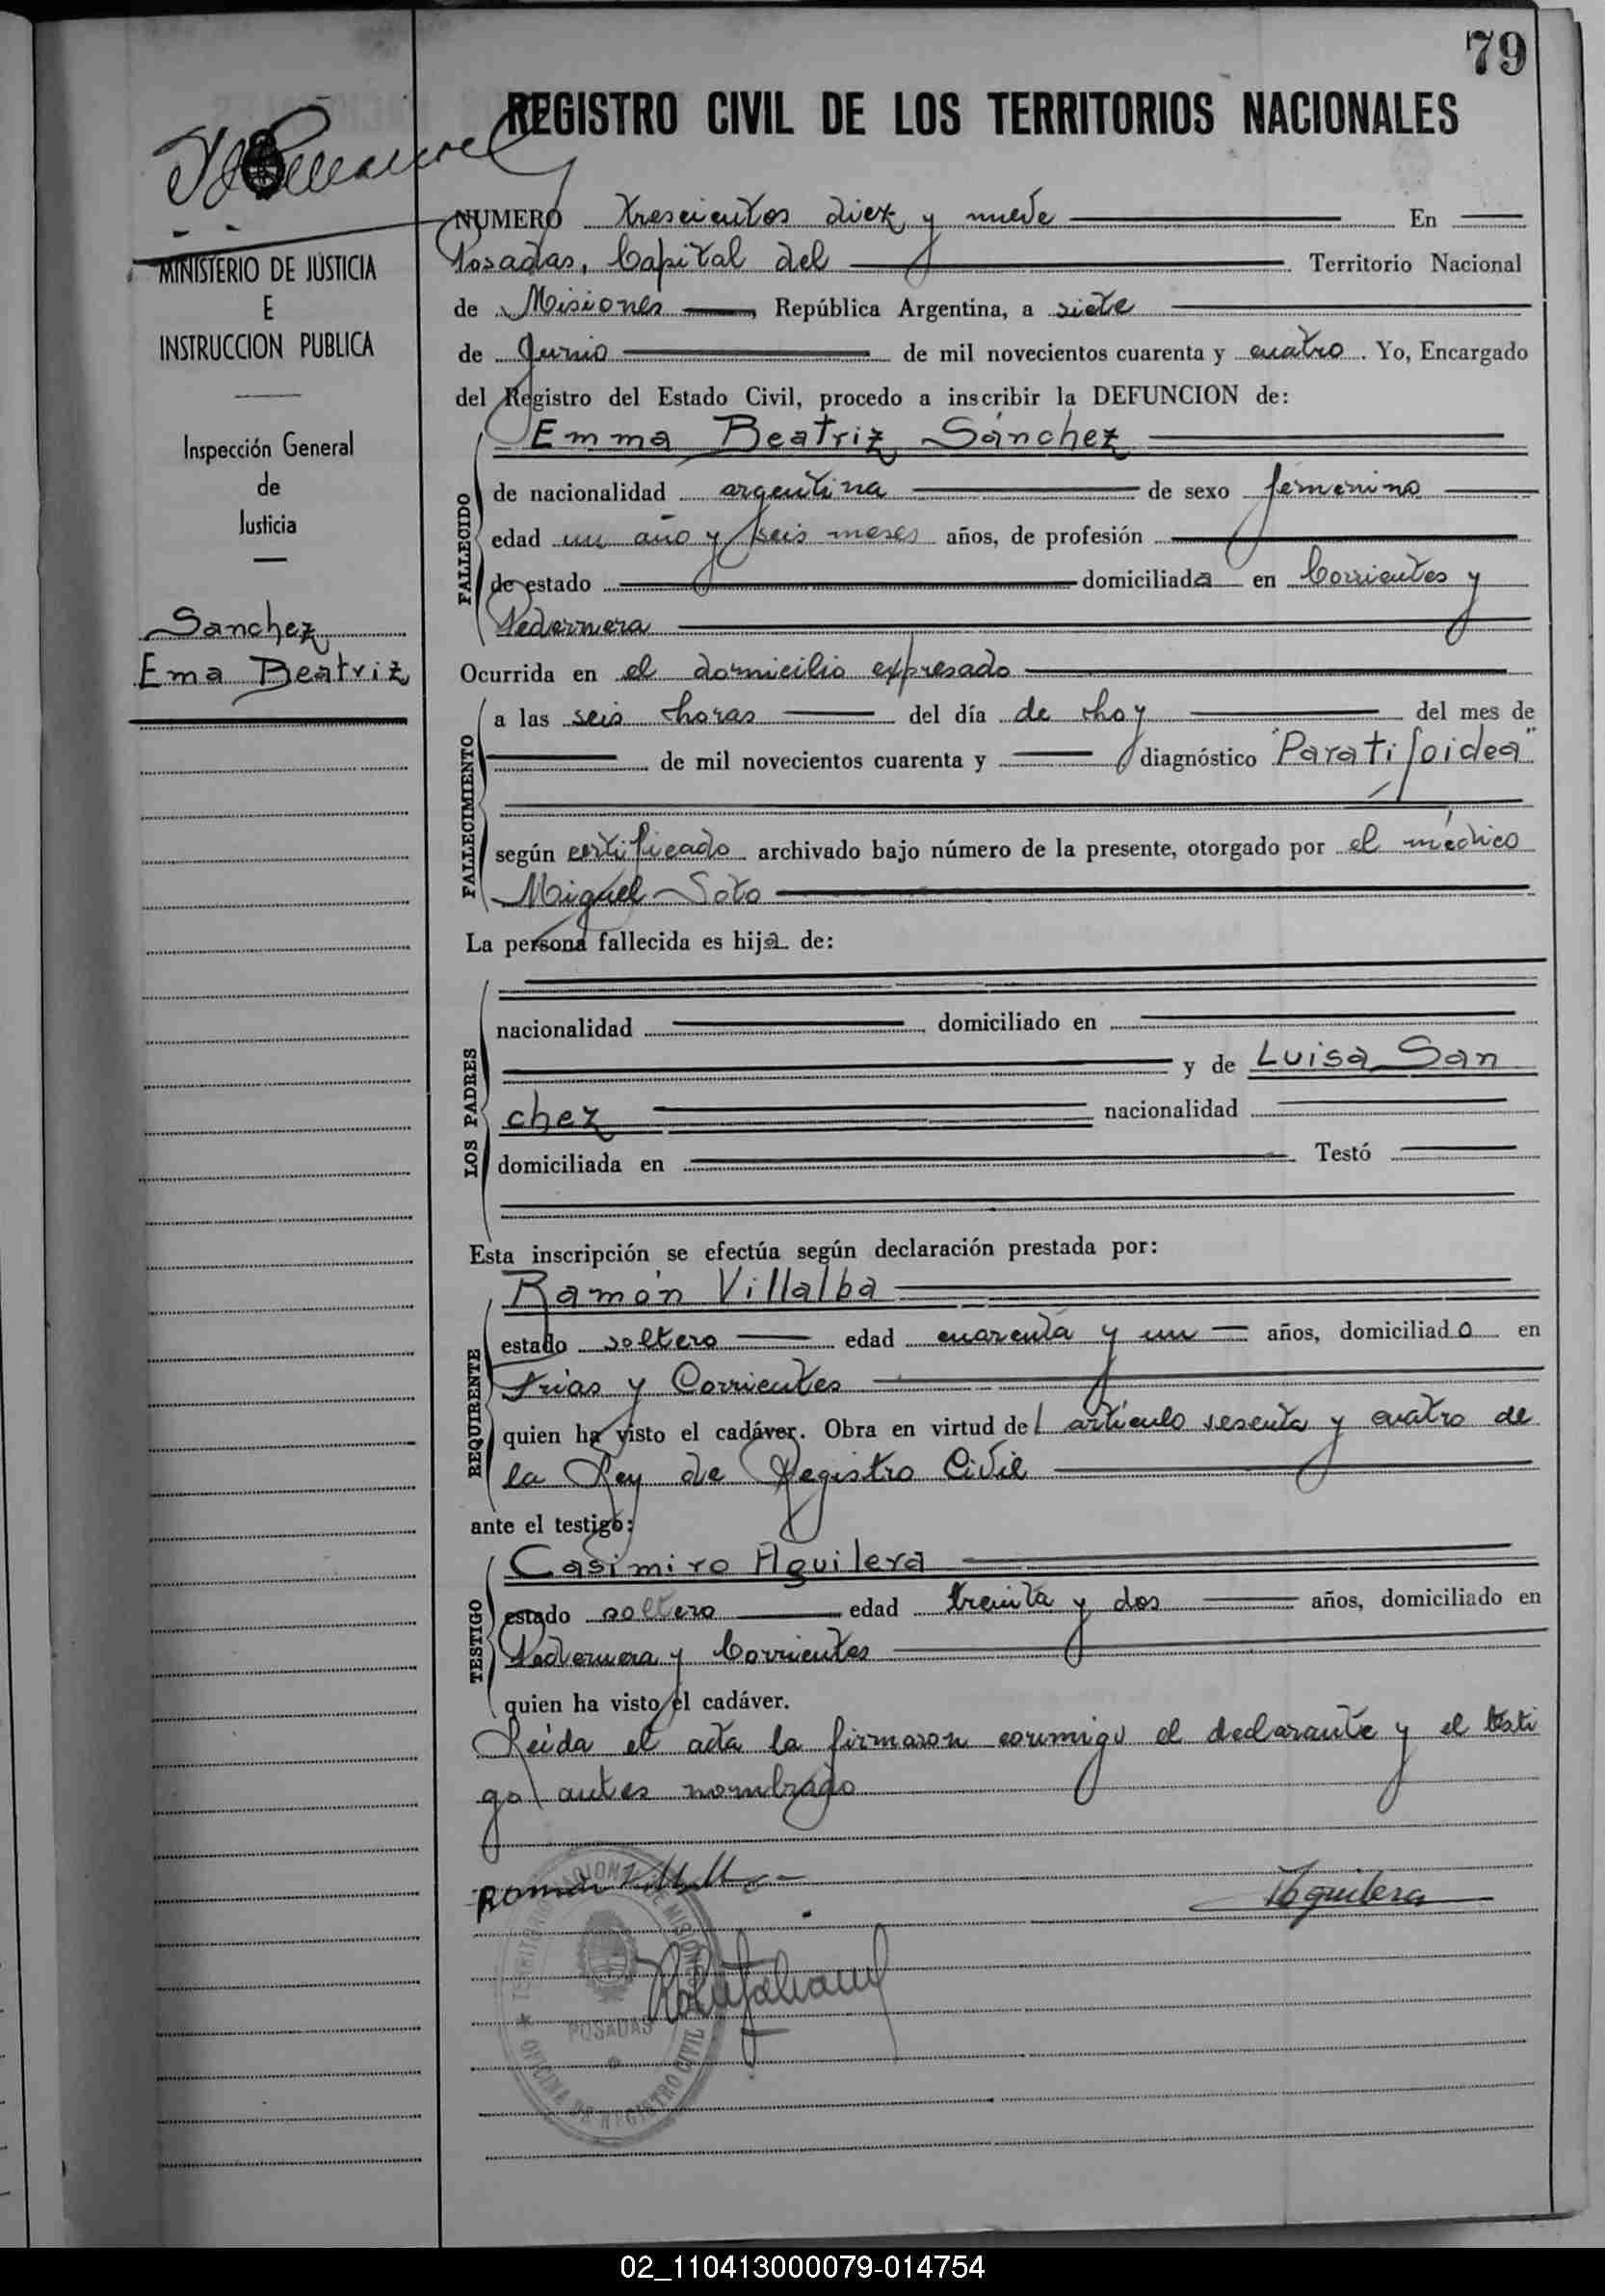 79
REGISTRO CIVIL DE LOS TERRITORIOS NACIONALES
MINISTERIO DE JUSTICIA
E
INSTRUCCION PUBLICA
Inspección General
de
Justicia
Sanchez
Ema Beatriz
NUMERO trescientos diez y nueve En
Posadas, Capital del Territorio Nacional
de Misiones, República Argentina, a siete
de Junio de mil novecientos cuarenta y cuatro. Yo, Encargado
del Registro del Estado Civil, procedo a inscribir la DEFUNCION de:
FALLECIDO
Emma Beatriz Sánchez
de nacionalidad argentina de sexo femenino
edad un año y seis meses años, de profesión
de estado domiciliada en Corrientes y
Pedernera
Ocurrida en el domicilio expresado
FALLECIMIENTO
a las seis horas del día de hoy del mes de
de mil novecientos cuarenta y diagnóstico "Paratifoidea"
según certificado archivado bajo número de la presente, otorgado por el médico
Miguel Soto
La persona fallecida es hija de:
LOS PADRES
nacionalidad domiciliado en
y de Luisa San
chez nacionalidad
domiciliada en Testó
Esta inscripción se efectúa según declaración prestada por:
REQUIRENTE
Ramón Villalba
estado soltero edad cuarenta y un años, domiciliado en
Frías y Corrientes
quien ha visto el cadáver. Obra en virtud del artículo sesenta y cuatro de
la Ley de Registro Civil
ante el testigo:
TESTIGO
Casimiro Aguilera
estado soltero edad treinta y dos años, domiciliado en
Pedernera y Corrientes
quien ha visto el cadáver.
Leída el acta la firmaron conmigo el declarante y el testi
go antes nombrado
Roman Villalba
Aguilera
TERRITORIO NACIONAL DE MISIONES
POSADAS
OFICINA DE REGISTRO CIVIL
02_110413000079-014754